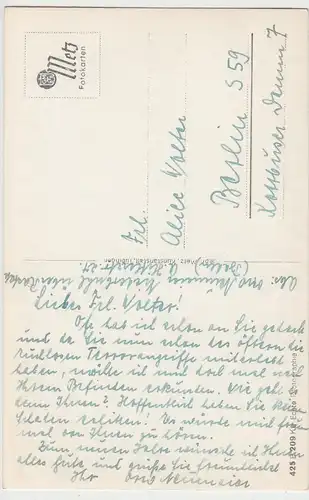 Metz
Fotokarten
Frl.
Alice Wolter
Berlin S 59
Kottbuser Damm 7
Abs: Otto
Liebes Frl. Wolter!
Oft hab ich schon an Sie gedacht
und da Sie nun schon des öfteren die
ruchlosen Terrorangriffe miterlebt
haben, wollte ich mich doch mal nach
Ihrem Befinden erkunden. Wie geht
denn Ihnen? Hoffentlich haben Sie kein
Schaden erlitten. Es würde mich freuen
mal von Ihnen zu hören.
Zum neuen Jahre wünsche ich Ihnen
alles Gute und grüße Sie freundlichst
Ihr Otto
425 2209